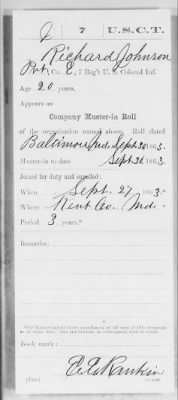 J 7 U.S.C.T.
Richard Johnson
Pvt, Co. E, 7 Reg't U. S. Colored Inf.
Age 20 years.
Appears on
Company Muster-in Roll
of the organization named above. Roll dated
Baltimore Md. Sept. 30, 1863.
Muster-in to date Sept. 30, 1863.
Joined for duty and enrolled:
When Sept. 27, 1863.
Where Kent Co. Md.
Period 3 years.*
Remarks:
Book mark:
E. E. Rankin
Copyist.